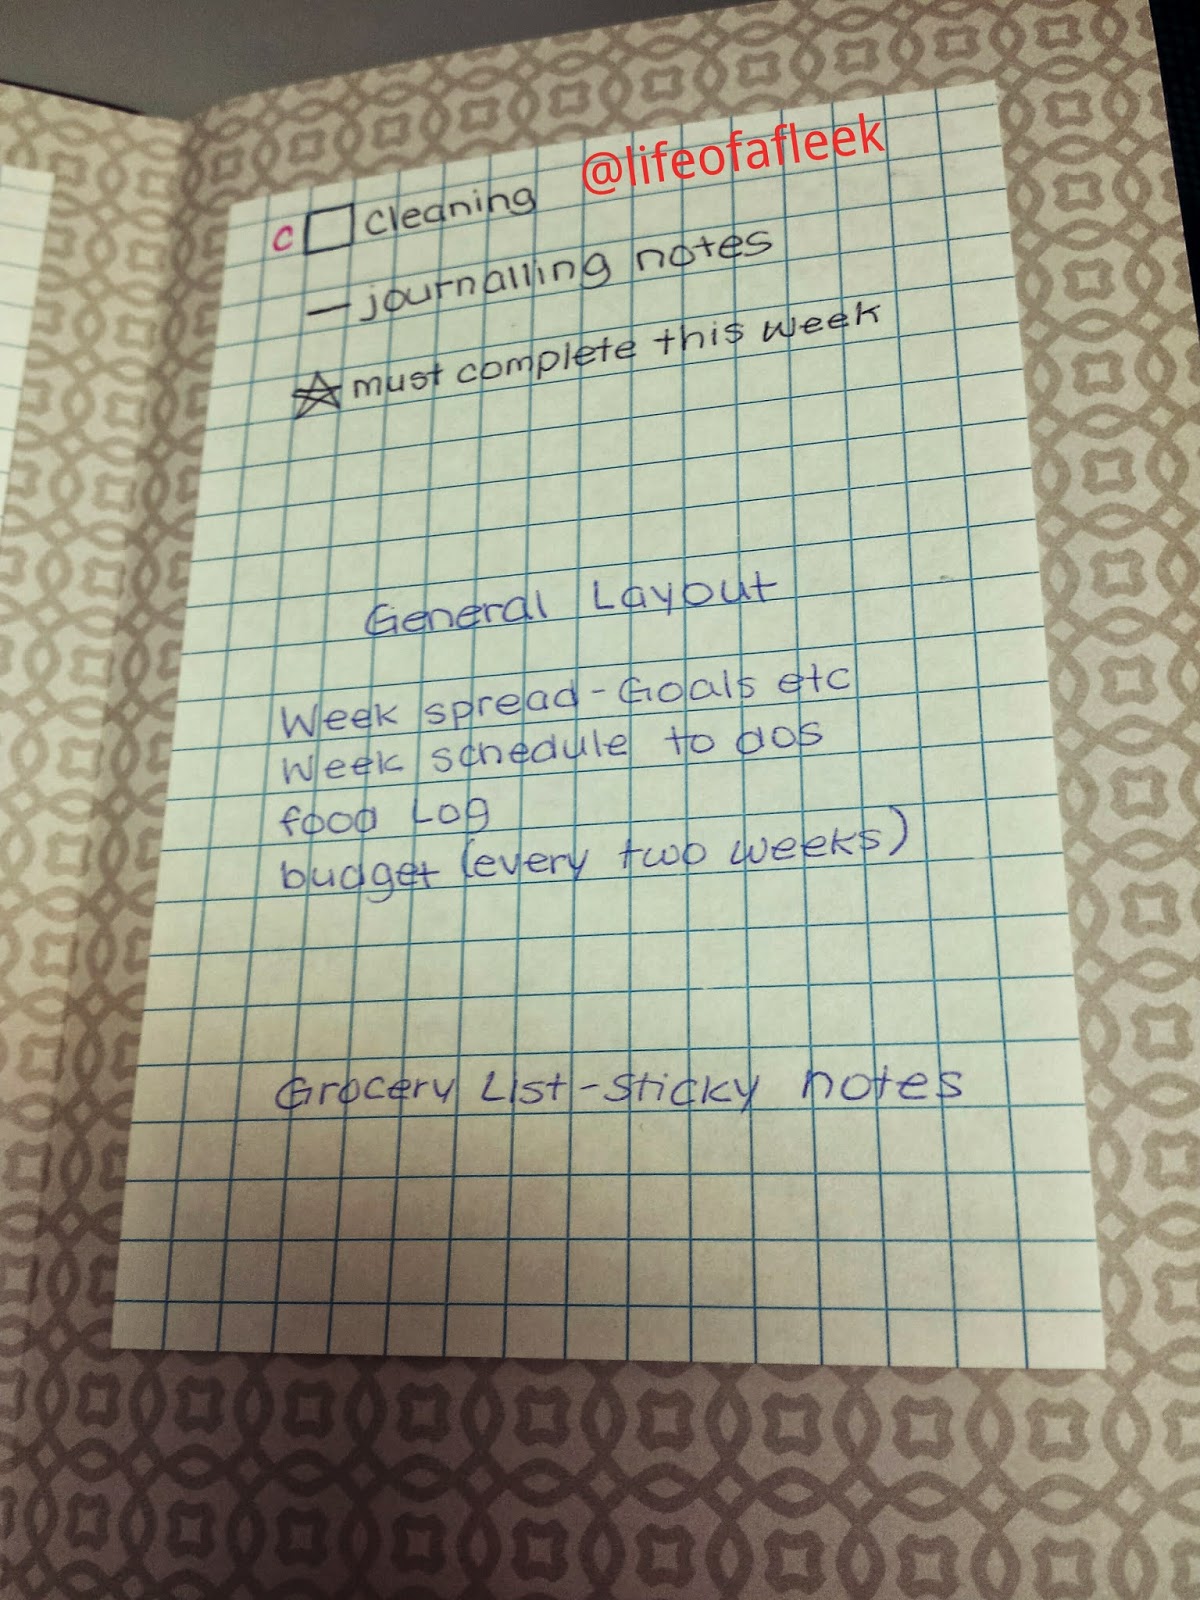 @lifeofafleek
c □ cleaning
— journalling notes
☆ must complete this week
General Layout
Week spread - Goals etc
Week schedule to dos
food Log
budget (every two weeks)
Grocery List - Sticky notes